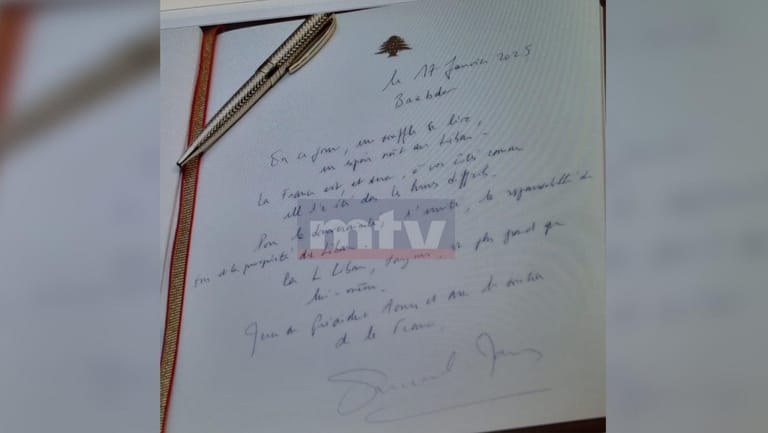 le 17 Janvier 2025
Baabda
En ce jour, un souffle se lève,
un espoir naît au Liban.
La France est, et sera, à vos côtés comme
elle l'a été dans les temps difficiles.
Pour la souveraineté, l'unité, la responsabilité de
tous et la prospérité du Liban.
mtv
Car le Liban, toujours, est plus grand que
lui-même.
au Président Aoun et de
de la France.